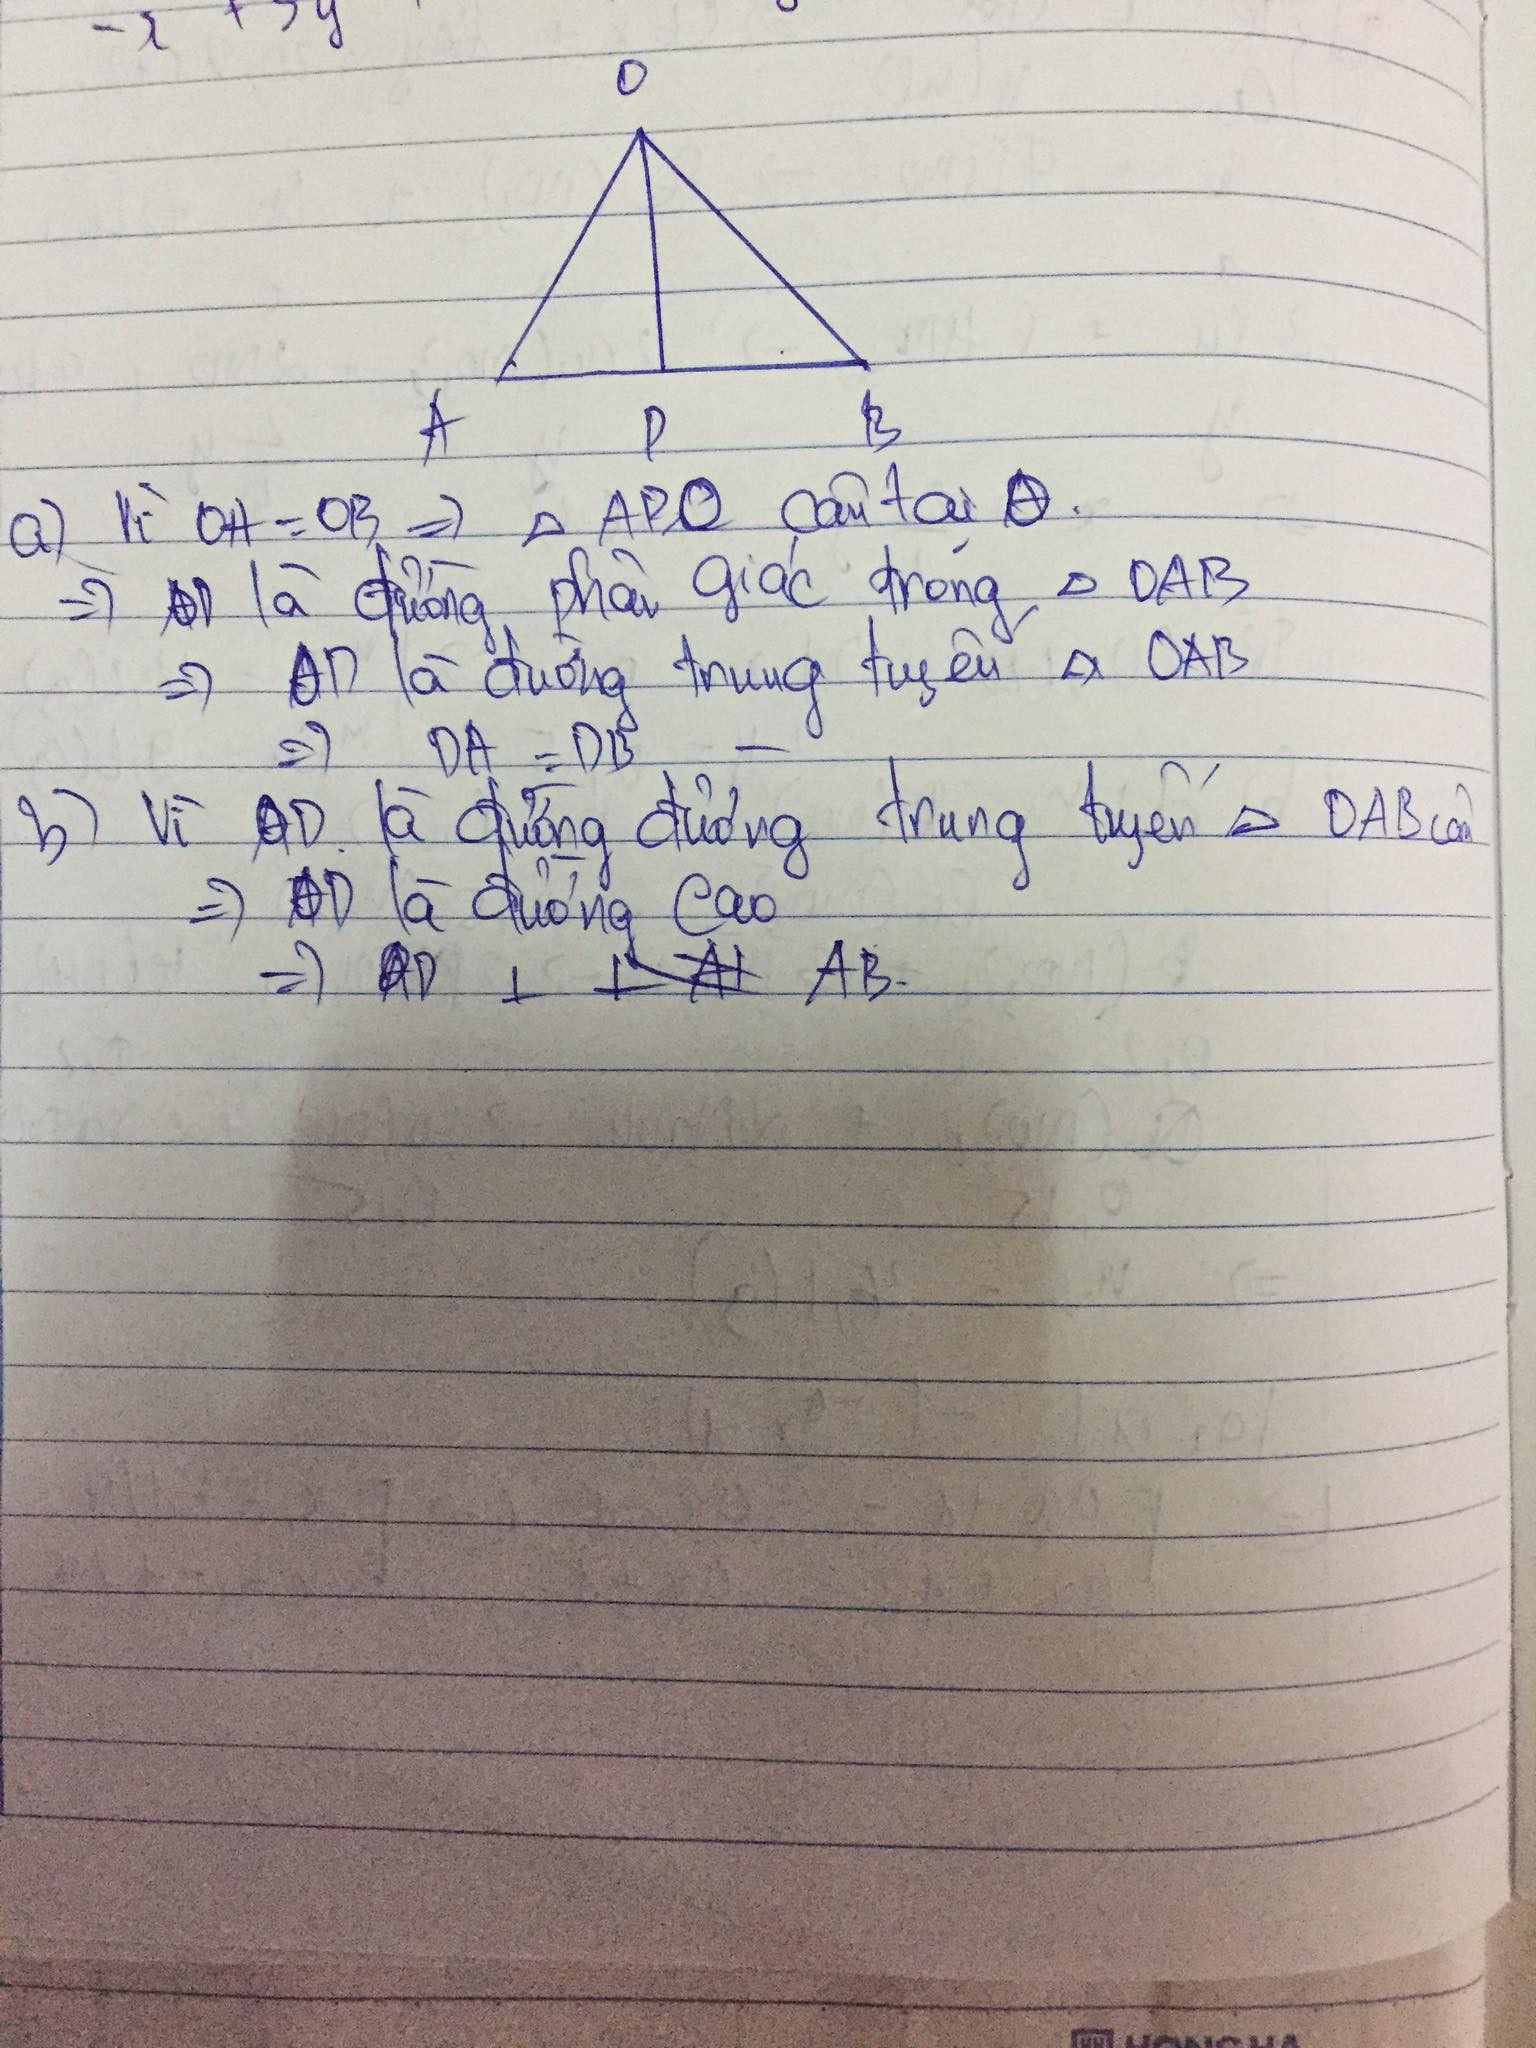 -x + 3y
O
A D B
a) Vì OA = OB => △ ABO cân tại O.
=> OD là đường phân giác trong △ OAB
=> OD là đường trung tuyến △ OAB
=> DA = DB
b) Vì OD là đường đường trung tuyến △ OAB cân
=> OD là đường cao
=> OD ⊥ AB.
HONG HA